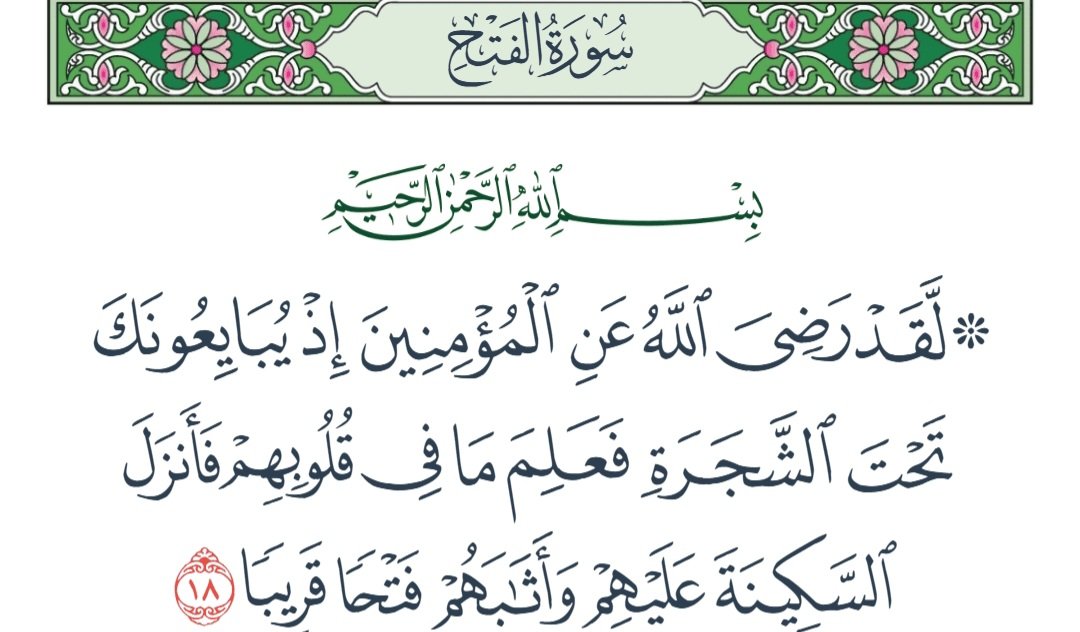 سُورَةُ الفَتۡحِ
بِسۡمِ ٱللَّهِ ٱلرَّحۡمَٰنِ ٱلرَّحِيمِ
۞ لَّقَدۡ رَضِيَ ٱللَّهُ عَنِ ٱلۡمُؤۡمِنِينَ إِذۡ يُبَايِعُونَكَ
تَحۡتَ ٱلشَّجَرَةِ فَعَلِمَ مَا فِي قُلُوبِهِمۡ فَأَنزَلَ
ٱلسَّكِينَةَ عَلَيۡهِمۡ وَأَثَٰبَهُمۡ فَتۡحٗا قَرِيبٗا ١٨